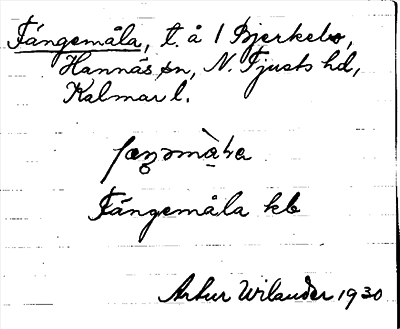 Fångemåla, t. å 1 Bjerkebo,
Hannäs sn, N. Tjusts hd,
Kalmar l.
Fångemåla kb
Artur Wilander 1930